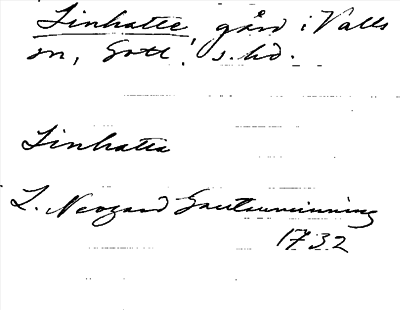 Linhatte, gård i Valls
sn, Gotl. s. hd.
Linhatte
L. Neogard Gautauminning
1732